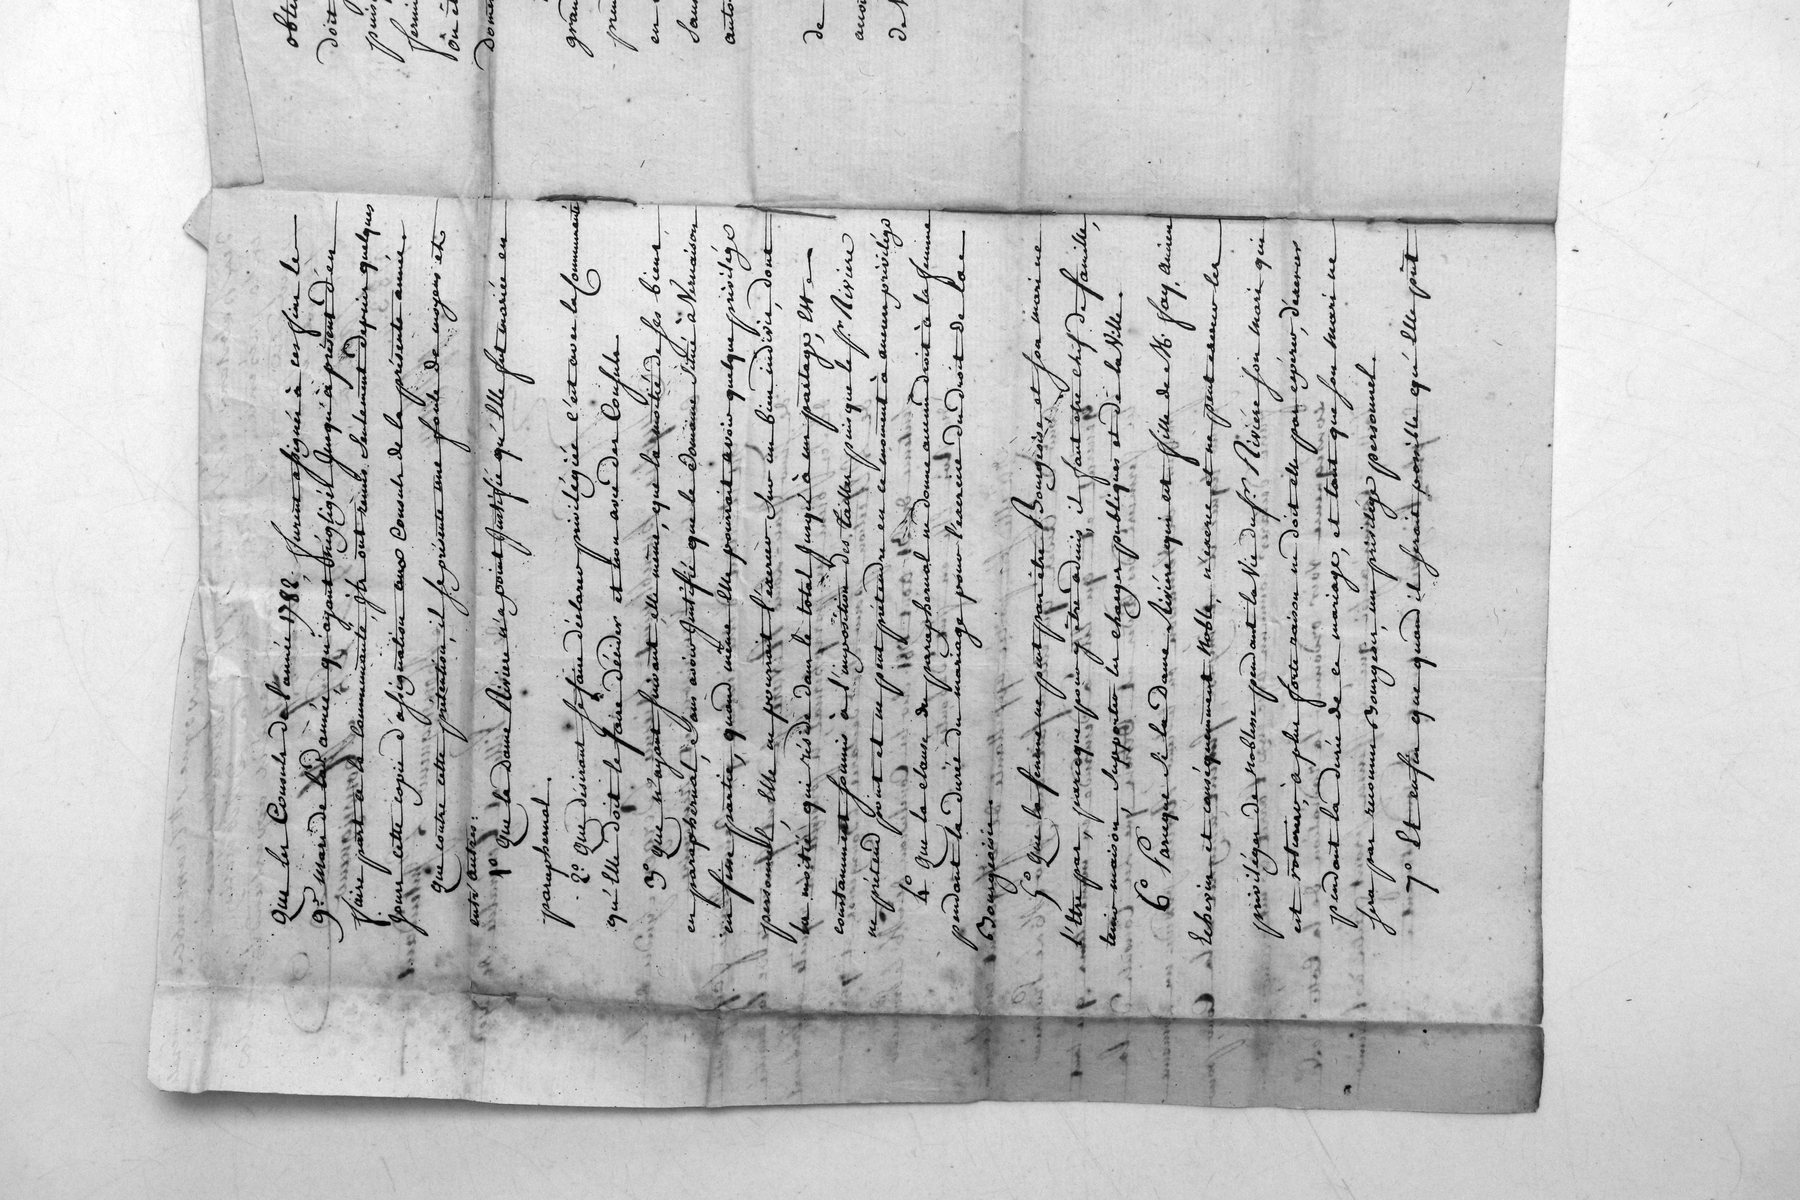 que les Consuls de l'année 1782. furent assignés à ces fins le
9e mars de lad. année qu'ayant négligé jusqu'à présent d'en
faire part à la Communauté, ils ont remis seulement depuis quelques
jours cette copie d'assignation aux Consuls de la présente année.
que contre cette prétention, il se présente une foule de moyens et
entr'autres:
1º Que la dame Riviere n'a point justifié qu'elle fut mariée en
paraphernal.
2º que désirant se faire déclarer privilégiée c'est avec la Communauté
qu'elle doit le faire décider et non avec des Consuls
3º que n'ayant suivant elle même, que la moitié de ses biens
en paraphernal, sans avoir justifié que le domaine situé à Vernaison
en fasse partie, quand même elle pourroit avoir quelque privilége
personnel, elle ne pourroit l'exercer sur un bien indivis, dont
la moitié, qui réside dans le total jusqu'à un partage, est
constamment soumis à l'imposition des tailles puisque le sr. Riviere
ne prétend point et ne peut prétendre en ce moment à aucun privilége
4º que la clause de paraphernal ne donne aucun droit à la femme
pendant la durée du mariage pour l'exercice du droit de la
Bourgeoisie.
5º que la femme ne peut pas être Bourgeoise si son mari ne
l'est pas, parceque pour y être admis, il faut être chef de famille,
tenir maison, supporter les charges publiques et de la ville.
6º Parceque si la Dame Riviére qui est fille de Mr. fay, ancien
Echevin et conséquemment Noble, n'exerce et ne peut exercer les
priviléges de Noblesse pendant la vie du sr. Riviére son mari qui
est roturier, à plus forte raison ne doit elle pas espérer, d'exercer
pendant la durée de ce mariage, et tant que son mari ne
sera pas reconnu Bourgeois, un privilége personnel.
7º Et enfin que quand il seroit possible qu'elle pût